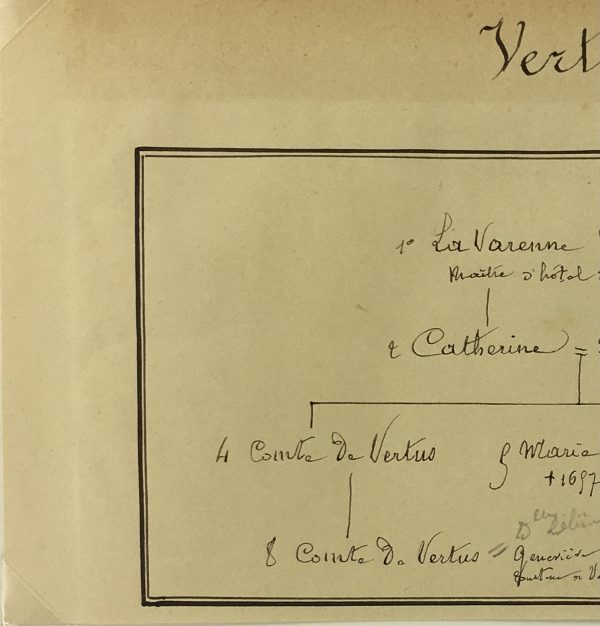 Vert
1° La Varenne
Maître d'hôtel
2 Catherine =
4 Comte De Vertus
5 Marie
+ 1697
8 Comte De Vertus =
Geneviève